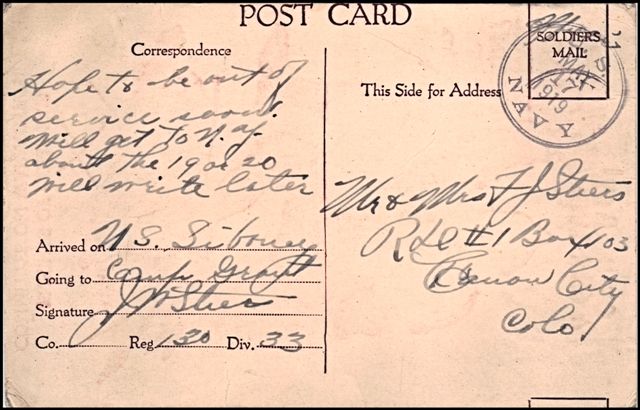 POST CARD
Correspondence
Hope to be out of
service soon.
Will get to N.Y.
about the 19 or 20
Will write later
Arrived on U.S. Siboney
Going to Camp Grant
Signature
Co. Reg. 130 Div. 33
SOLDIERS
MAIL
U.S.
NAVY
MAY
17
1919
This Side for Address
Mr & Mrs F J Stiers
R #1 Box 103
Canon City
Colo